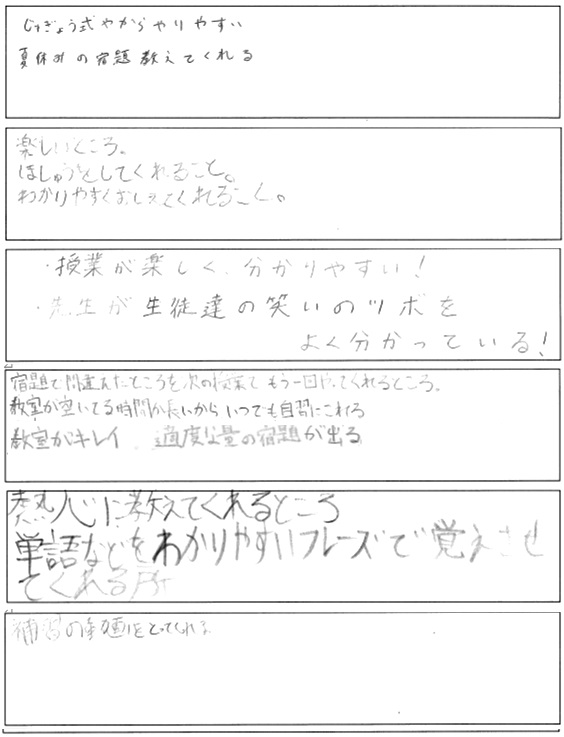 じゅぎょう式やからやりやすい
夏休みの宿題教えてくれる
楽しいところ。
ほしゅうをしてくれること。
わかりやすくおしえてくれるこく。
・授業が楽しく、分かりやすい!
・先生が生徒達の笑いのツボを
よく分かっている!
宿題で間違えたところを次の授業でもう一回やってくれるところ。
教室が空いてる時間が長いからいつでも自習にこれる
教室がキレイ 適度な量の宿題が出る
熱心に教えてくれるところ
単語などをわかりやすいフレーズで覚えさせ
てくれる所
補習の をとってくれる